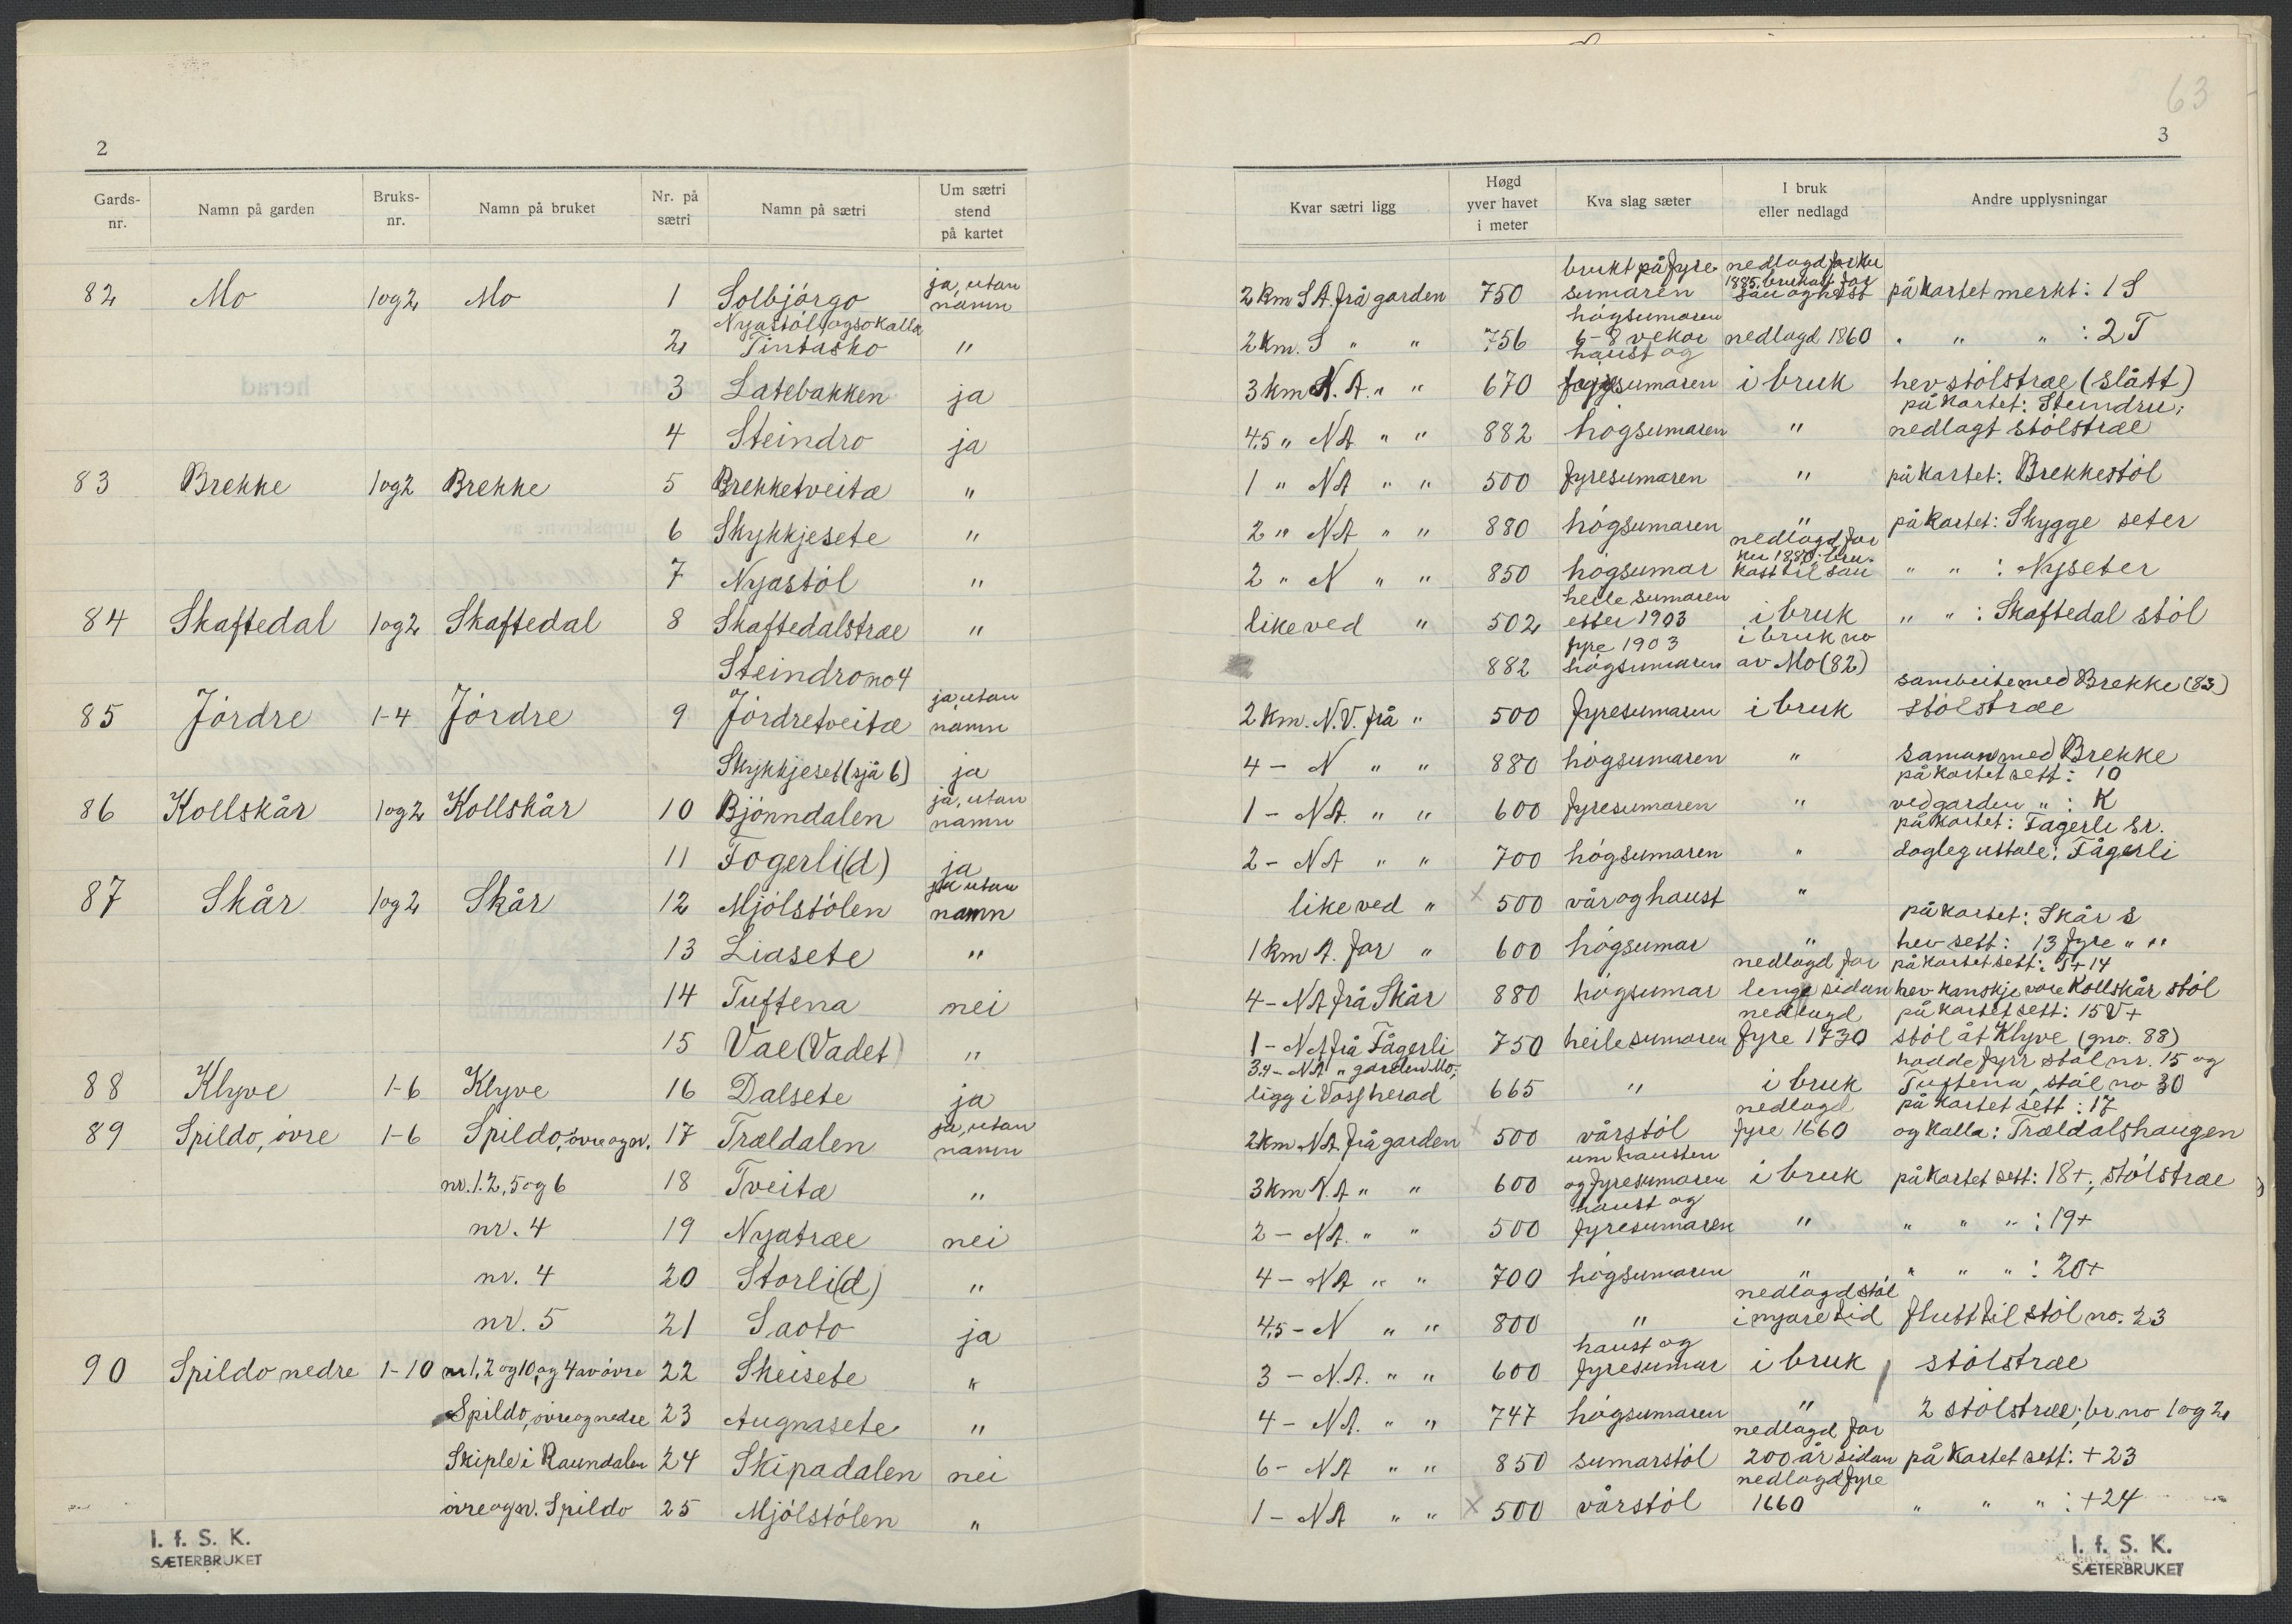 63
2
3
Gards-nr. Namn på garden Bruks-nr. Namn på bruket Nr. på sætri Namn på sætri Um sætri stend på kartet Kvar sætri ligg Høgd yver havet i meter Kva slag sæter I bruk eller nedlagd Andre upplysningar
82 Mo 1og2 Mo 1 Solbjørgo ja, utan namn 2 km S.A. frå garden 750 brukt på fyresumaren nedlagd for ku 1885. brukast for sau og hest på kartet merkt: 1 S
2 Nyastøl, ogso kalla Tintasko " 2 km. S " " 756 høgsumaren 6-8 vekor nedlagd 1860 " " " : 2 T
3 Latebakken ja 3 km N.A. " " 670 haust og fyresumaren i bruk hev stølstræ (slått)
4 Steindro ja 4,5 " NA " " 882 høgsumaren " på kartet: Steindru; nedlagt stølstræ
83 Brekke 1og2 Brekke 5 Brekketveitæ " 1 " NA " " 500 fyresumaren " på kartet: Brekkestøl
6 Skykkjesete " 2 " NA " " 880 høgsumaren " på kartet: Skygge seter
7 Nyastøl " 2 " N " " 850 høgsumar nedlagd for ku 1880. brukast til sau " " : Nyseter
84 Skaftedal 1og2 Skaftedal 8 Skaftedalstræ " like ved " 502 heile sumaren etter 1903 i bruk " " : Skaftedal støl
Steindro no 4 882 fyre 1903 høgsumaren i bruk no av Mo (82)
85 Jørdre 1-4 Jørdre 9 Jørdretveitæ ja, utan namn 2 km. N.V. frå " 500 fyresumaren i bruk sambeite med Brekke (83) stølstræ
Skykkjeset (sjå 6) ja 4 - N " " 880 høgsumaren " saman med Brekke
86 Kollskår 1og2 Kollskår 10 Bjønndalen ja, utan namn 1 - NA. " " 600 fyresumaren " på kartet sett: 10 ved garden " : K
11 Fogerli(d) ja 2 - NA " " 700 høgsumaren " på kartet: Fagerli sr. dagleg uttale: Fågerli
87 Skår 1og2 Skår 12 Mjølstølen ja utan namn like ved " x 500 vår og haust "
13 Liasete " 1 km A. for " 600 høgsumar " på kartet: Skår S hev sett: 13 fyre " "
14 Tuftena nei 4 - NA frå Skår 880 høgsumar nedlagd for lenge sidan på kartet sett: T + 14 hev kanskje vore Kollskår støl
15 Vae (Vadet) " 1 - NA frå Fågerli 750 heile sumaren nedlagd fyre 1730 på kartet sett: 15 V + støl åt Klyve (gno. 88)
88 Klyve 1-6 Klyve 16 Dalsete ja 3.4 - NA " garden Mo; ligg i Voss herad 665 " i bruk hadde fyrr støl nr. 15 og Tuftena, støl no 30
89 Spildo, øvre 1-6 Spildo, øvre og n. 17 Træeldalen ja, utan namn 2 km NA frå garden x 500 vårstøl nedlagd fyre 1660 på kartet sett: 17 og kalla: Træeldalshaugen
nr. 1. 2, 5 og 6 18 Tveitæ " 3 km N.A " " 600 um hausten og fyresumaren i bruk på kartet sett: 18 +; stølstræ
nr. 4 19 Nyatræ nei 2 - NA. " " 500 haust og fyresumaren " " " " : 19 +
nr. 4 20 Storli(d) " 4 - NA " " 700 høgsumaren " " " " : 20 +
nr. 5 21 Saoto ja 4,5 - N " " 800 " nedlagd støl i nyare tid flutt til støl no. 23
90 Spildo nedre 1-10 nr 1, 2 og 10, og 4 av øvre 22 Skeisete " 3 - N.A. " " 600 haust og fyresumar i bruk stølstræ
Spildo, øvre og nedre 23 Augnasete " 4 - NA. " " 747 høgsumaren " 2 stølstræ; br. no 1 og 2
Skiple i Raundalen 24 Skipadalen nei 6 - NA " " 850 sumarstøl nedlagd for 200 år sidan på kartet sett: + 23
øvre og n. Spildo 25 Mjølstølen " 1 - NA " " x 500 vårstøl nedlagd fyre 1660 " " " : + 24
I. f. S. K.
SÆTERBRUKET
I. f. S. K.
SÆTERBRUKET